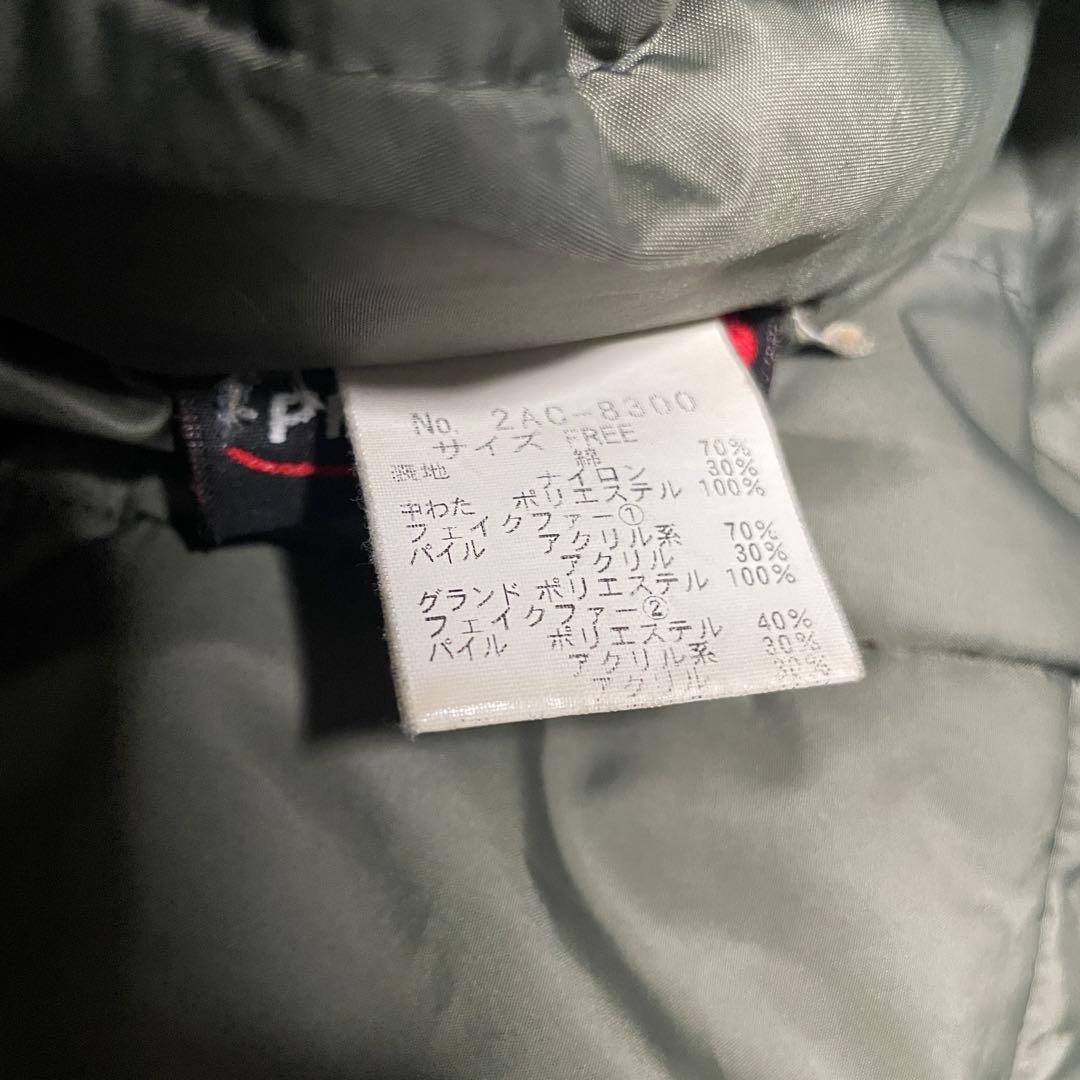 No. 2AC-8300
サイズ FREE
表地 綿 70%
ナイロン 30%
中わた ポリエステル 100%
フェイクファー①
パイル アクリル系 70%
アクリル 30%
グランド ポリエステル 100%
フェイクファー②
パイル ポリエステル 40%
アクリル系 30%
アクリル 30%